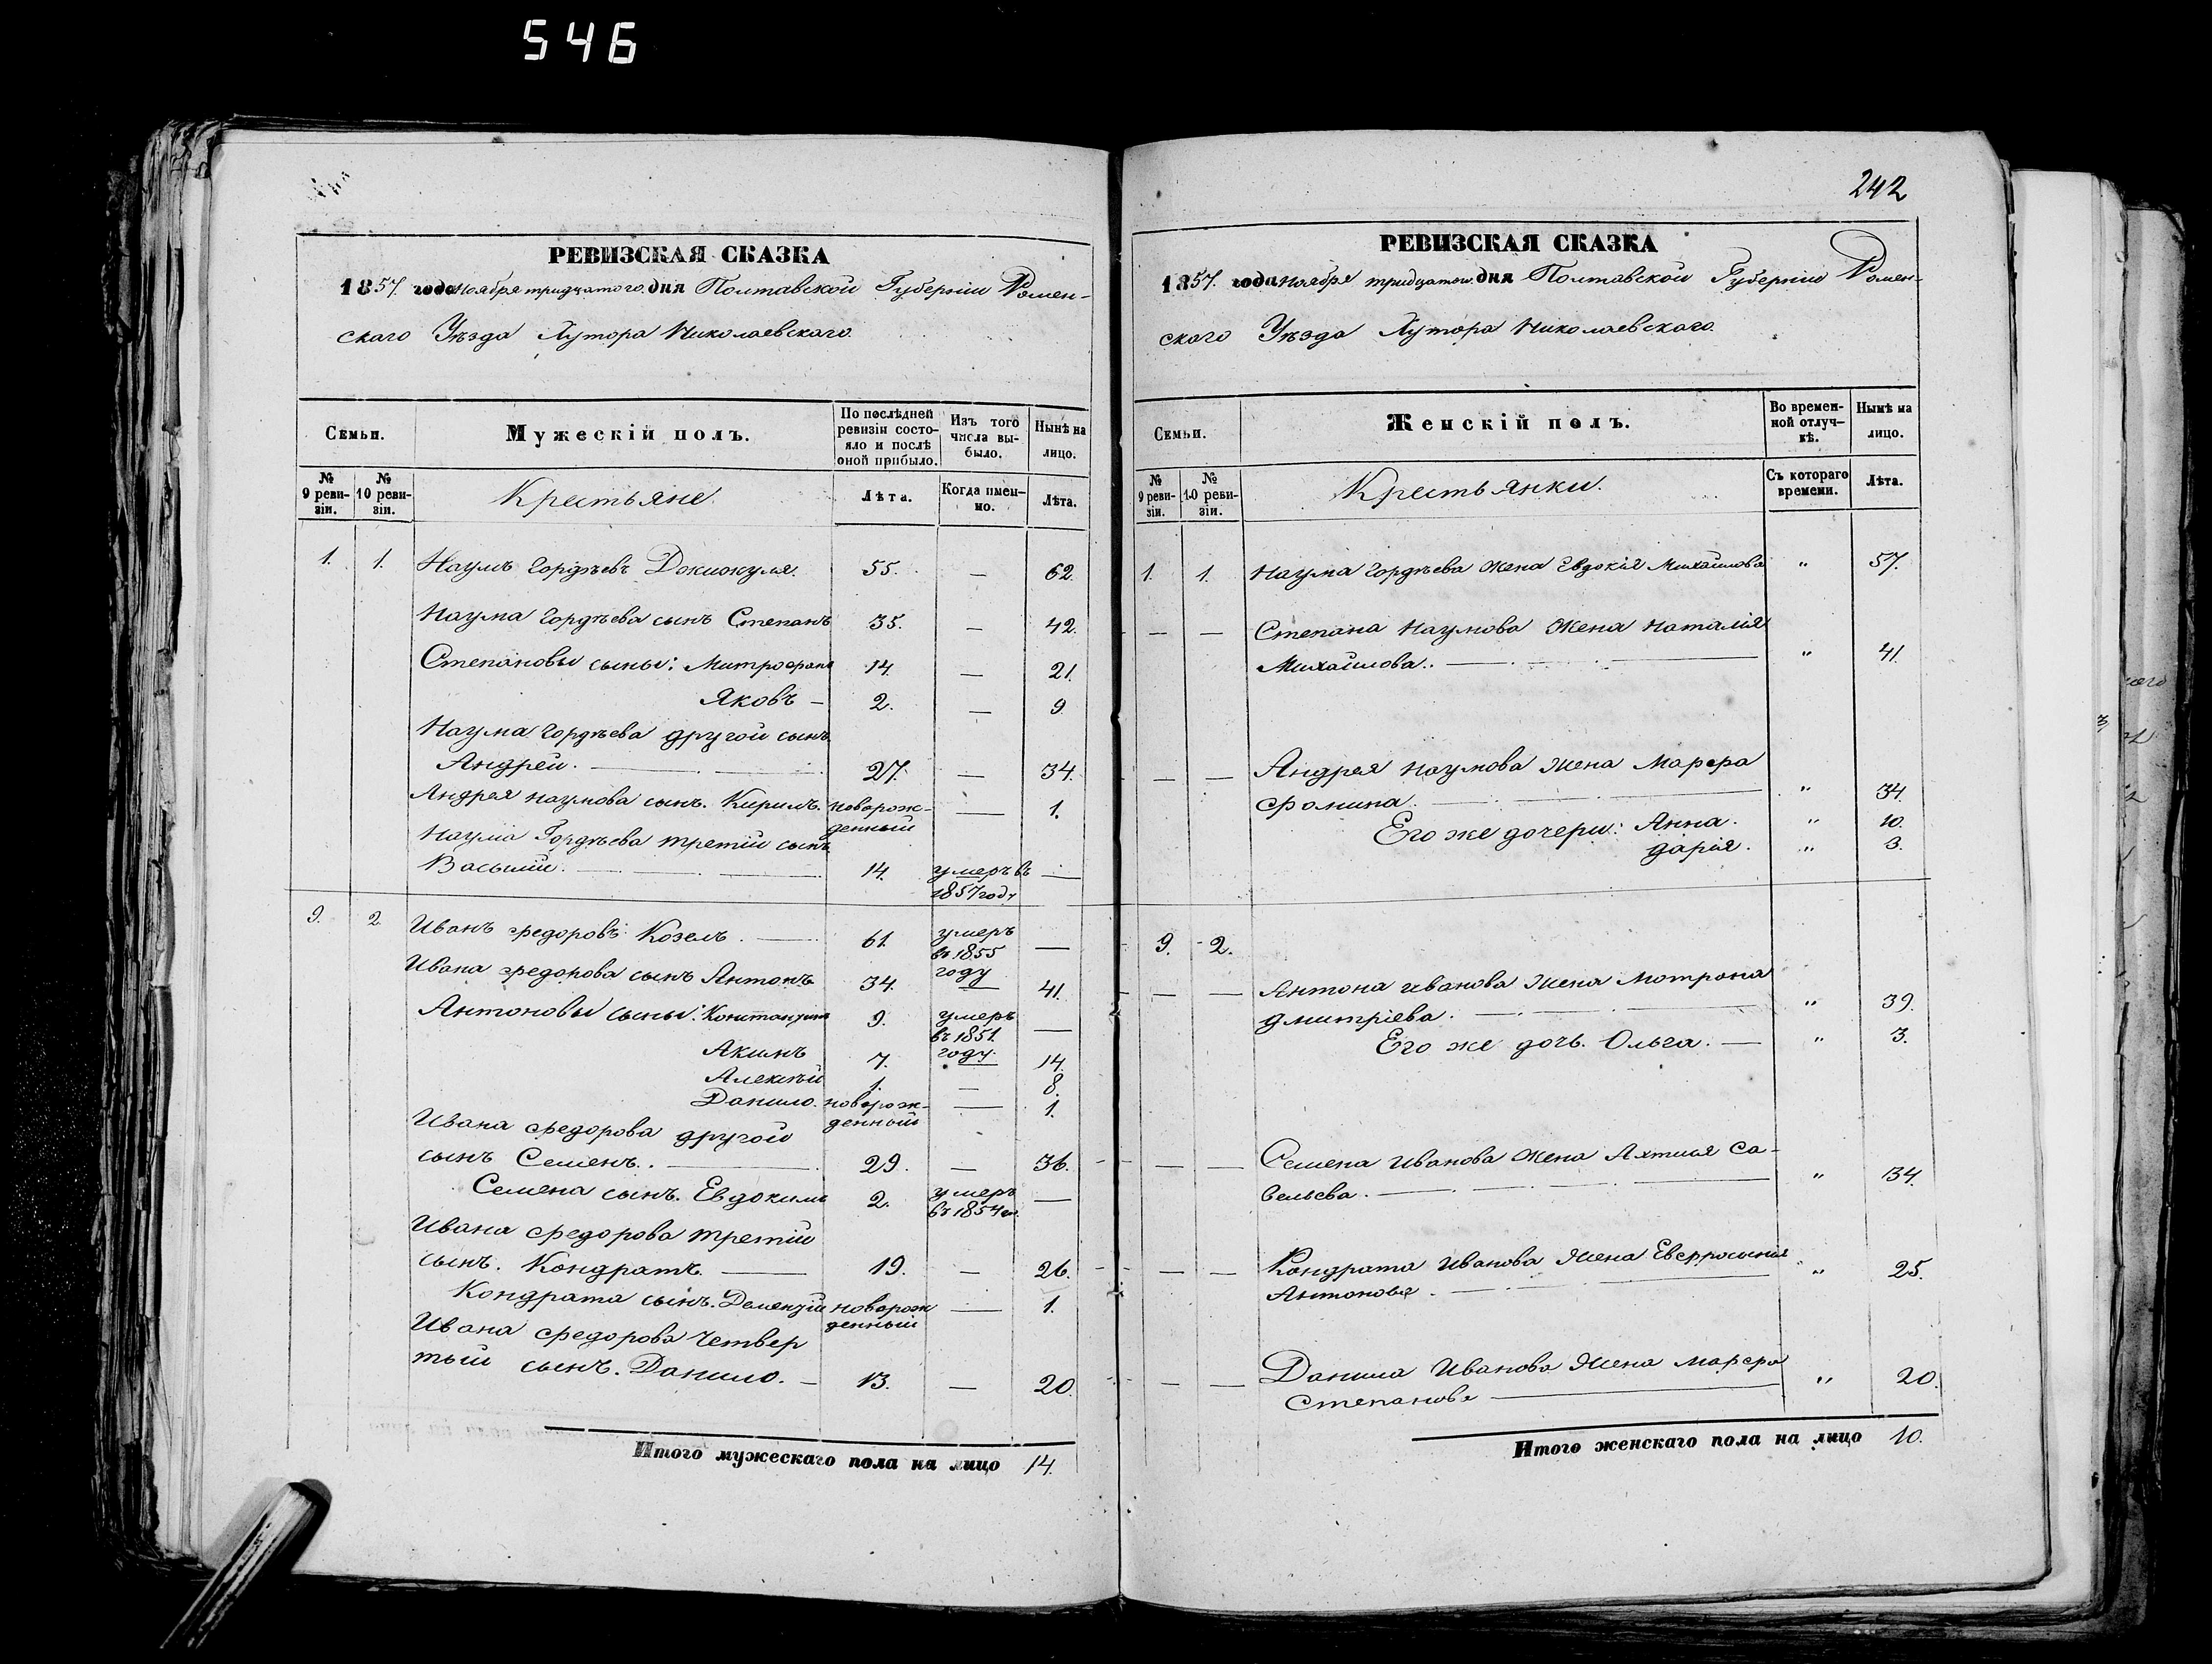 546
РЕВИЗСКАЯ СКАЗКА
1857. года Ноября тридцатого. дня Полтавской Губерніи Ромен-
скаго Уѣзда Хутора Николаевскаго.
Семьи.
Мужескій полъ.
По послѣдней ревизіи состо-яло и послѣ оной прибыло.
Изъ того числа вы-было.
Нынѣ на лицо.
№ 9 реви-зіи.
№ 10 реви-зіи.
Крестьяне.
Лѣта.
Когда имен-но.
Лѣта.
1. 1. Наумъ Гордѣевъ 55. — 62.
Наума Гордѣева сынъ Степанъ 35. — 42.
Степановы сыны: Митрофанъ 14. — 21.
Яковъ — 2. — 9.
Наума Гордѣева другой сынъ
Андрей. — 27. — 34.
Андрея Наумова сынъ. Кирилъ. новорож-денный — 1.
Наума Гордѣева третій сынъ
Василій. — 14. умеръ въ 1857 году —
9. 2. Иванъ Федоровъ Козелъ. — 61. умеръ въ 1855 году —
Ивана Федорова сынъ Антонъ 34. — 41.
Антоновы сыны: Константинъ 9. умеръ въ 1851. году. —
Акимъ 7. — 14.
Алексѣй 1. — 8.
Данило. новорож-денный — 1.
Ивана Федорова другой
сынъ Семенъ. — 29. — 36.
Семена сынъ. Евдокимъ 2. умеръ въ 1854 —
Ивана Федорова третій
сынъ. Кондратъ. — 19. — 26.
Кондрата сынъ. новорож-денный — 1.
Ивана Федорова четвер
тый сынъ. Данило. — 13. — 20.
Итого мужескаго пола на лицо 14.
242
РЕВИЗСКАЯ СКАЗКА
1857. года Ноября тридцатого. дня Полтавской Губерніи Ромен-
скаго Уѣзда Хутора Николаевскаго.
Семьи.
Женскій полъ.
Во времен-ной отлуч-кѣ.
Нынѣ на лицо.
№ 9 реви-зіи.
№ 10 реви-зіи.
Крестьянки.
Съ котораго времени.
Лѣта.
1. 1. Наума Гордѣева жена Евдокія Михайлова " 57.
— — Степана Наумова жена Наталія
Михайлова. — " 41.
— — Андрея Наумова жена Марфа
Фомина. — " 34.
Его же дочери: Анна. " 10.
Дарія. " 3.
9. 2.
— — Антона Иванова жена Мотрона
Дмитріева. — " 39.
Его же дочь. Ольга. — " 3.
— — Семена Иванова жена Са-
вельева. — " 34.
— — Кондрата Иванова жена Евфросинія
Антонова. — " 25.
— — Данила Иванова жена Марфа
Степанова — " 20.
Итого женскаго пола на лицо 10.